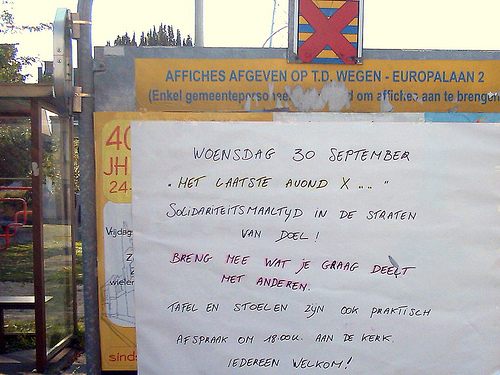 AFFICHES AFGEVEN OP T.D. WEGEN - EUROPALAAN 2
(Enkel om affiches aan te
WOENSDAG 30 SEPTEMBER
"HET LAATSTE AVOND X .... "
SOLIDARITEITSMAALTYD IN DE STRATEN
VAN DOEL!
BRENG MEE WAT JE GRAAG DEELT
MET ANDEREN.
TAFEL EN STOELEN ZYN OOK PRAKTISCH
AFSPRAAK OM 18:00U. AAN DE KERK.
IEDEREEN WELKOM!
JH
24-
Vrijdag